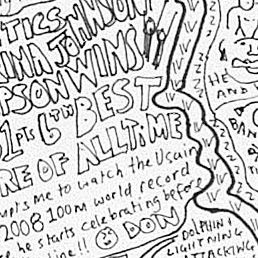 TICS
INA JOHNSON
WINS
PSON WINS
1 pts 6TH BEST
RE OF ALL TIME
me to watch the Usain
2008 100m world record
he starts celebrating before
line!! DON
HE
AND
DOLPHIN +
LIGHTNING
ATTACKING